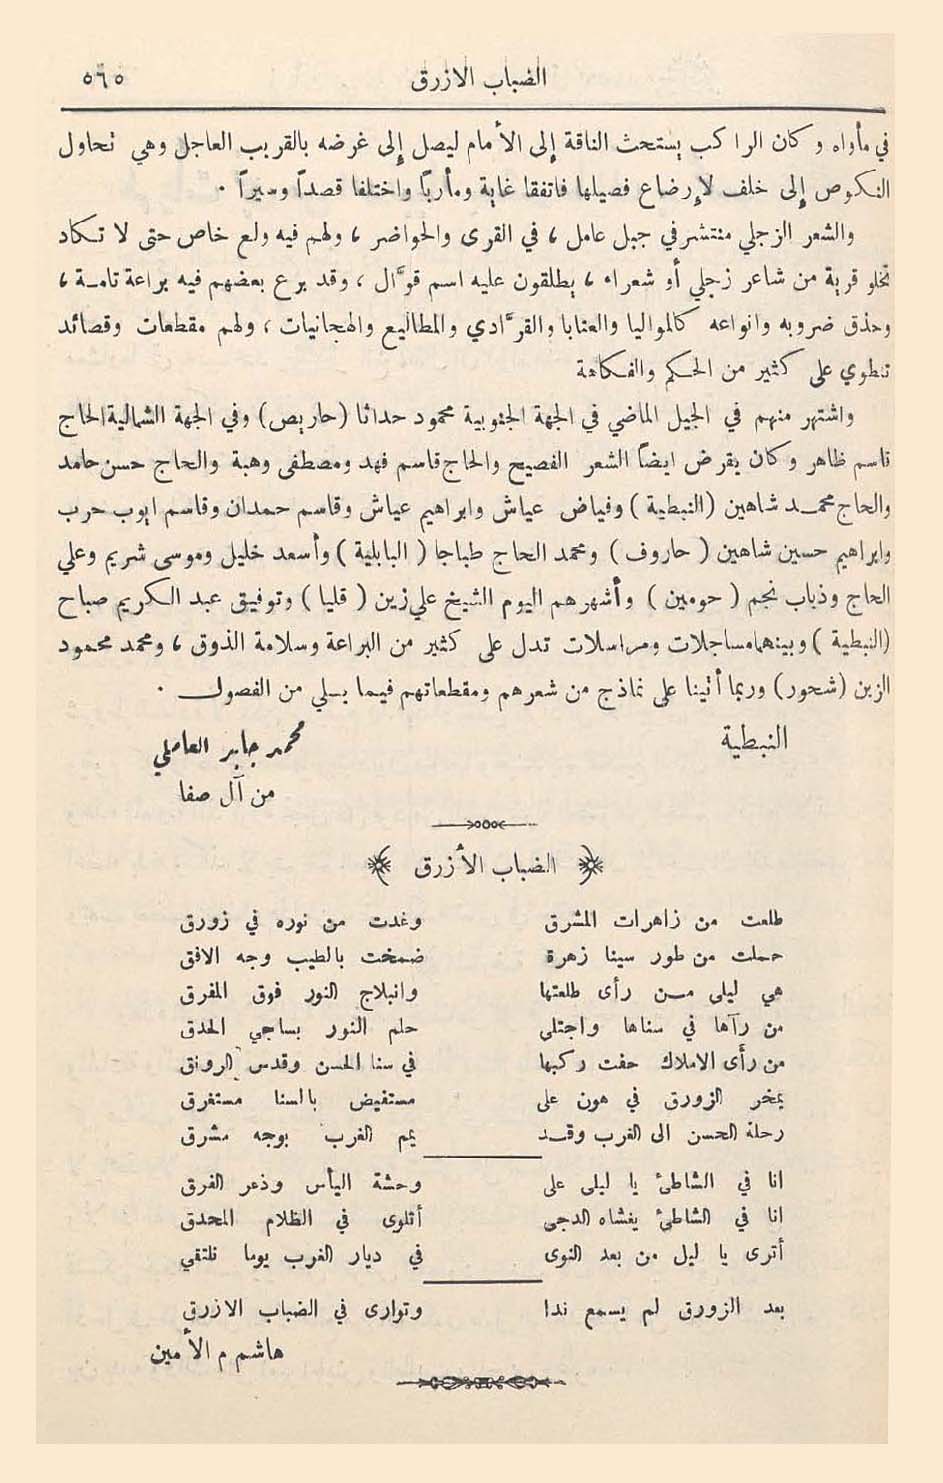 الضباب الازرق ٥٦٥
في مأواه وكان الراكب يستحث الناقة إلى الأمام ليصل إلى غرضه بالقريب العاجل وهي تحاول
النكوص إلى خلف لإرضاع فصيلها فاتفقا غاية ومأرباً واختلفا قصداً وسيراً .
والشعر الزجلي منتشر في جبل عامل ، في القرى والحواضر ، ولهم فيه ولع خاص حتى لا تكاد
تخلو قرية من شاعر زجلي أو شعراء ، يطلقون عليه اسم قوَّال ، وقد برع بعضهم فيه براعة تامة ،
وحذق ضروبه وانواعه كالمواليا والعتابا والقرَّادي والمطاليع والهجانيات ، ولهم مقطعات وقصائد
تنطوي على كثير من الحكم والفكاهة
واشتهر منهم في الجيل الماضي في الجهة الجنوبية محمود حداثا (حاريص) وفي الجهة الشمالية الحاج
قاسم ظاهر وكان يقرض ايضاً الشعر الفصيح والحاج قاسم فهد ومصطفى وهبة والحاج حسن حامد
والحاج محمد شاهين (النبطية) وفياض عياش وابراهيم عياش وقاسم حمدان وقاسم ايوب حرب
وابراهيم حسين شاهين ( حاروف ) ومحمد الحاج طباجا ( البابلية ) وأسعد خليل وموسى شريم وعلي
الحاج وذباب نجم ( حومين ) وأشهرهم اليوم الشيخ علي زين ( قليا ) وتوفيق عبد الكريم صباح
(النبطية ) وبينهما مساجلات ومراسلات تدل على كثير من البراعة وسلامة الذوق ، ومحمد محمود
الزين (شحور) وربما أتينا على نماذج من شعرهم ومقطعاتهم فيما يلي من الفصول .
النبطية محمد جابر العاملي
من آل صفا
الضباب الأزرق
طلعت من زاهرات المشرق وغدت من نوره في زورق
حملت من طور سينا زهرة ضمخت بالطيب وجه الافق
هي ليلى من رأى طلعتها وانبلاج النور فوق المفرق
من رآها في سناها واجتلى حلم النور بساجي الحدق
من رأى الاملاك حفت ركبها في سنا الحسن وقدس الرونق
يمخر الزورق في هون على مستفيض بالسنا مستغرق
رحلة الحسن الى الغرب وقد يمم الغرب بوجه مشرق
انا في الشاطئ يا ليلى على وحشة اليأس وذعر الفرق
انا في الشاطئ يغشاه الدجى أتلوى في الظلام المحدق
أترى يا ليل من بعد النوى في ديار الغرب يوما نلتقي
بعد الزورق لم يسمع ندا وتوارى في الضباب الازرق
هاشم م الأمين